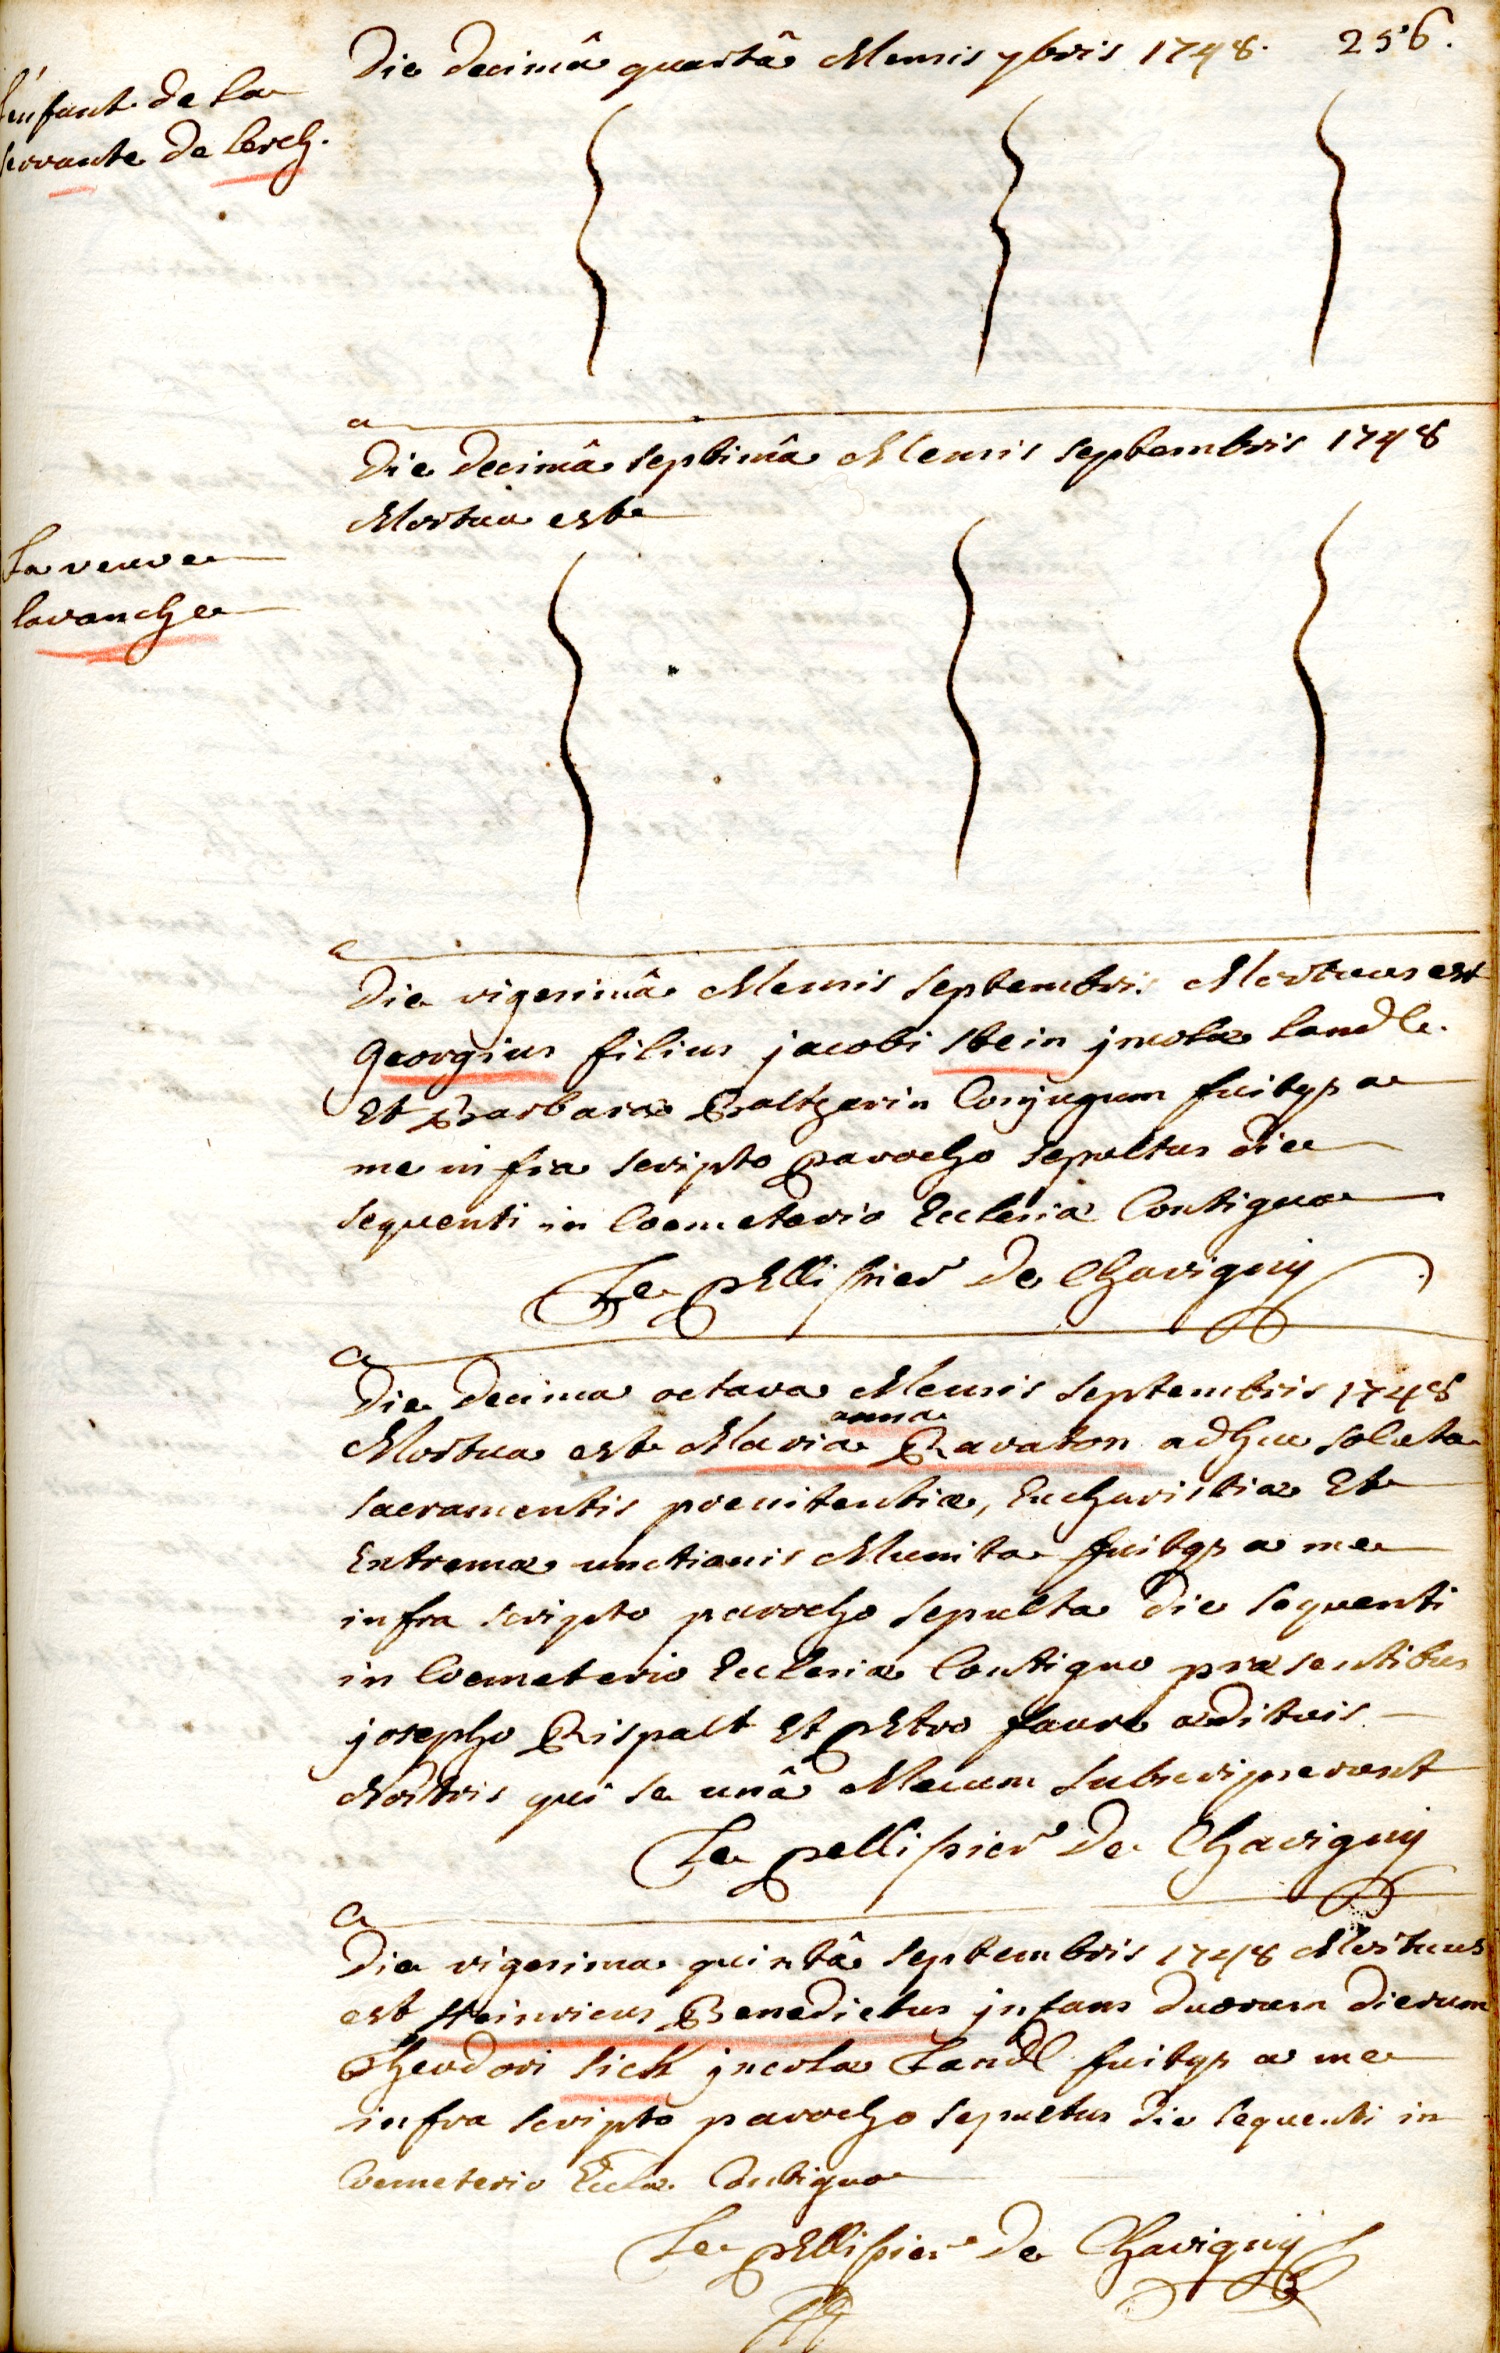 256.
Die decimâ quartâ Mensis 7bris 1748.
l'enfant de la
servante de lerch.
Die decimâ septimâ Mensis septembris 1748
Mortua est
la veuve
lavanche
Die vigesimâ Mensis septembris Mortuus est
Georgius filius jacobi stein jncolæ Landl.
Et Barbaræ Baltzerin Conjugum fuitqs a
me infra scripto parocho sepultus die
sequenti in Coemeterio Ecclesiæ Contiguo
Le pellissier de Chavigny
Die decima octava Mensis septembris 1748
anna
Mortua est Maria Ravaton adhuc soluta
sacramentis poenitentiæ, Eucharistiæ Et
Extremæ unctionis Munita fuitqs a me
infra scripto parocho sepulta die sequenti
in Coemeterio Ecclesiæ Contiguo præsentibus
josepho Rispalt Et pEtro faure ædituis
Nostris qui se unâ Mecum subscripserunt
Le pellissier de Chavigny
Die vigesima quintâ septembris 1748 Mortuus
est Heinricus Benedictus jnfans duorum dierum
Theodori sich jncolæ Landl fuitqs a me
infra scripto parocho sepultus die sequenti in
Coemeterio Ecclæ Contiguo
Le pEllissier de Chavigny